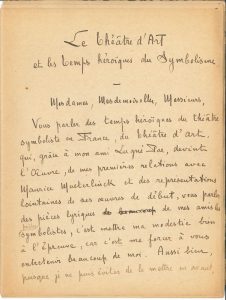 Le Théâtre d'Art
et les temps héroïques du Symbolisme
Mesdames, Mesdemoiselles, Messieurs,
Vous parler des temps héroïques du théâtre
symboliste en France, du Théâtre d'art,
qui, grâce à mon ami Lugné Poe, devint
l'Œuvre, de mes premières relations avec
Maurice Maeterlinck et des représentations
lointaines de ses œuvres de début, vous parler
des pièces lyriques de beaucoup de mes amis les
symbolistes, c'est mettre ma modestie bien
à l'épreuve, car c'est me forcer à vous
entretenir beaucoup de moi. Aussi bien,
puisque je ne puis éviter de la mettre en avant,